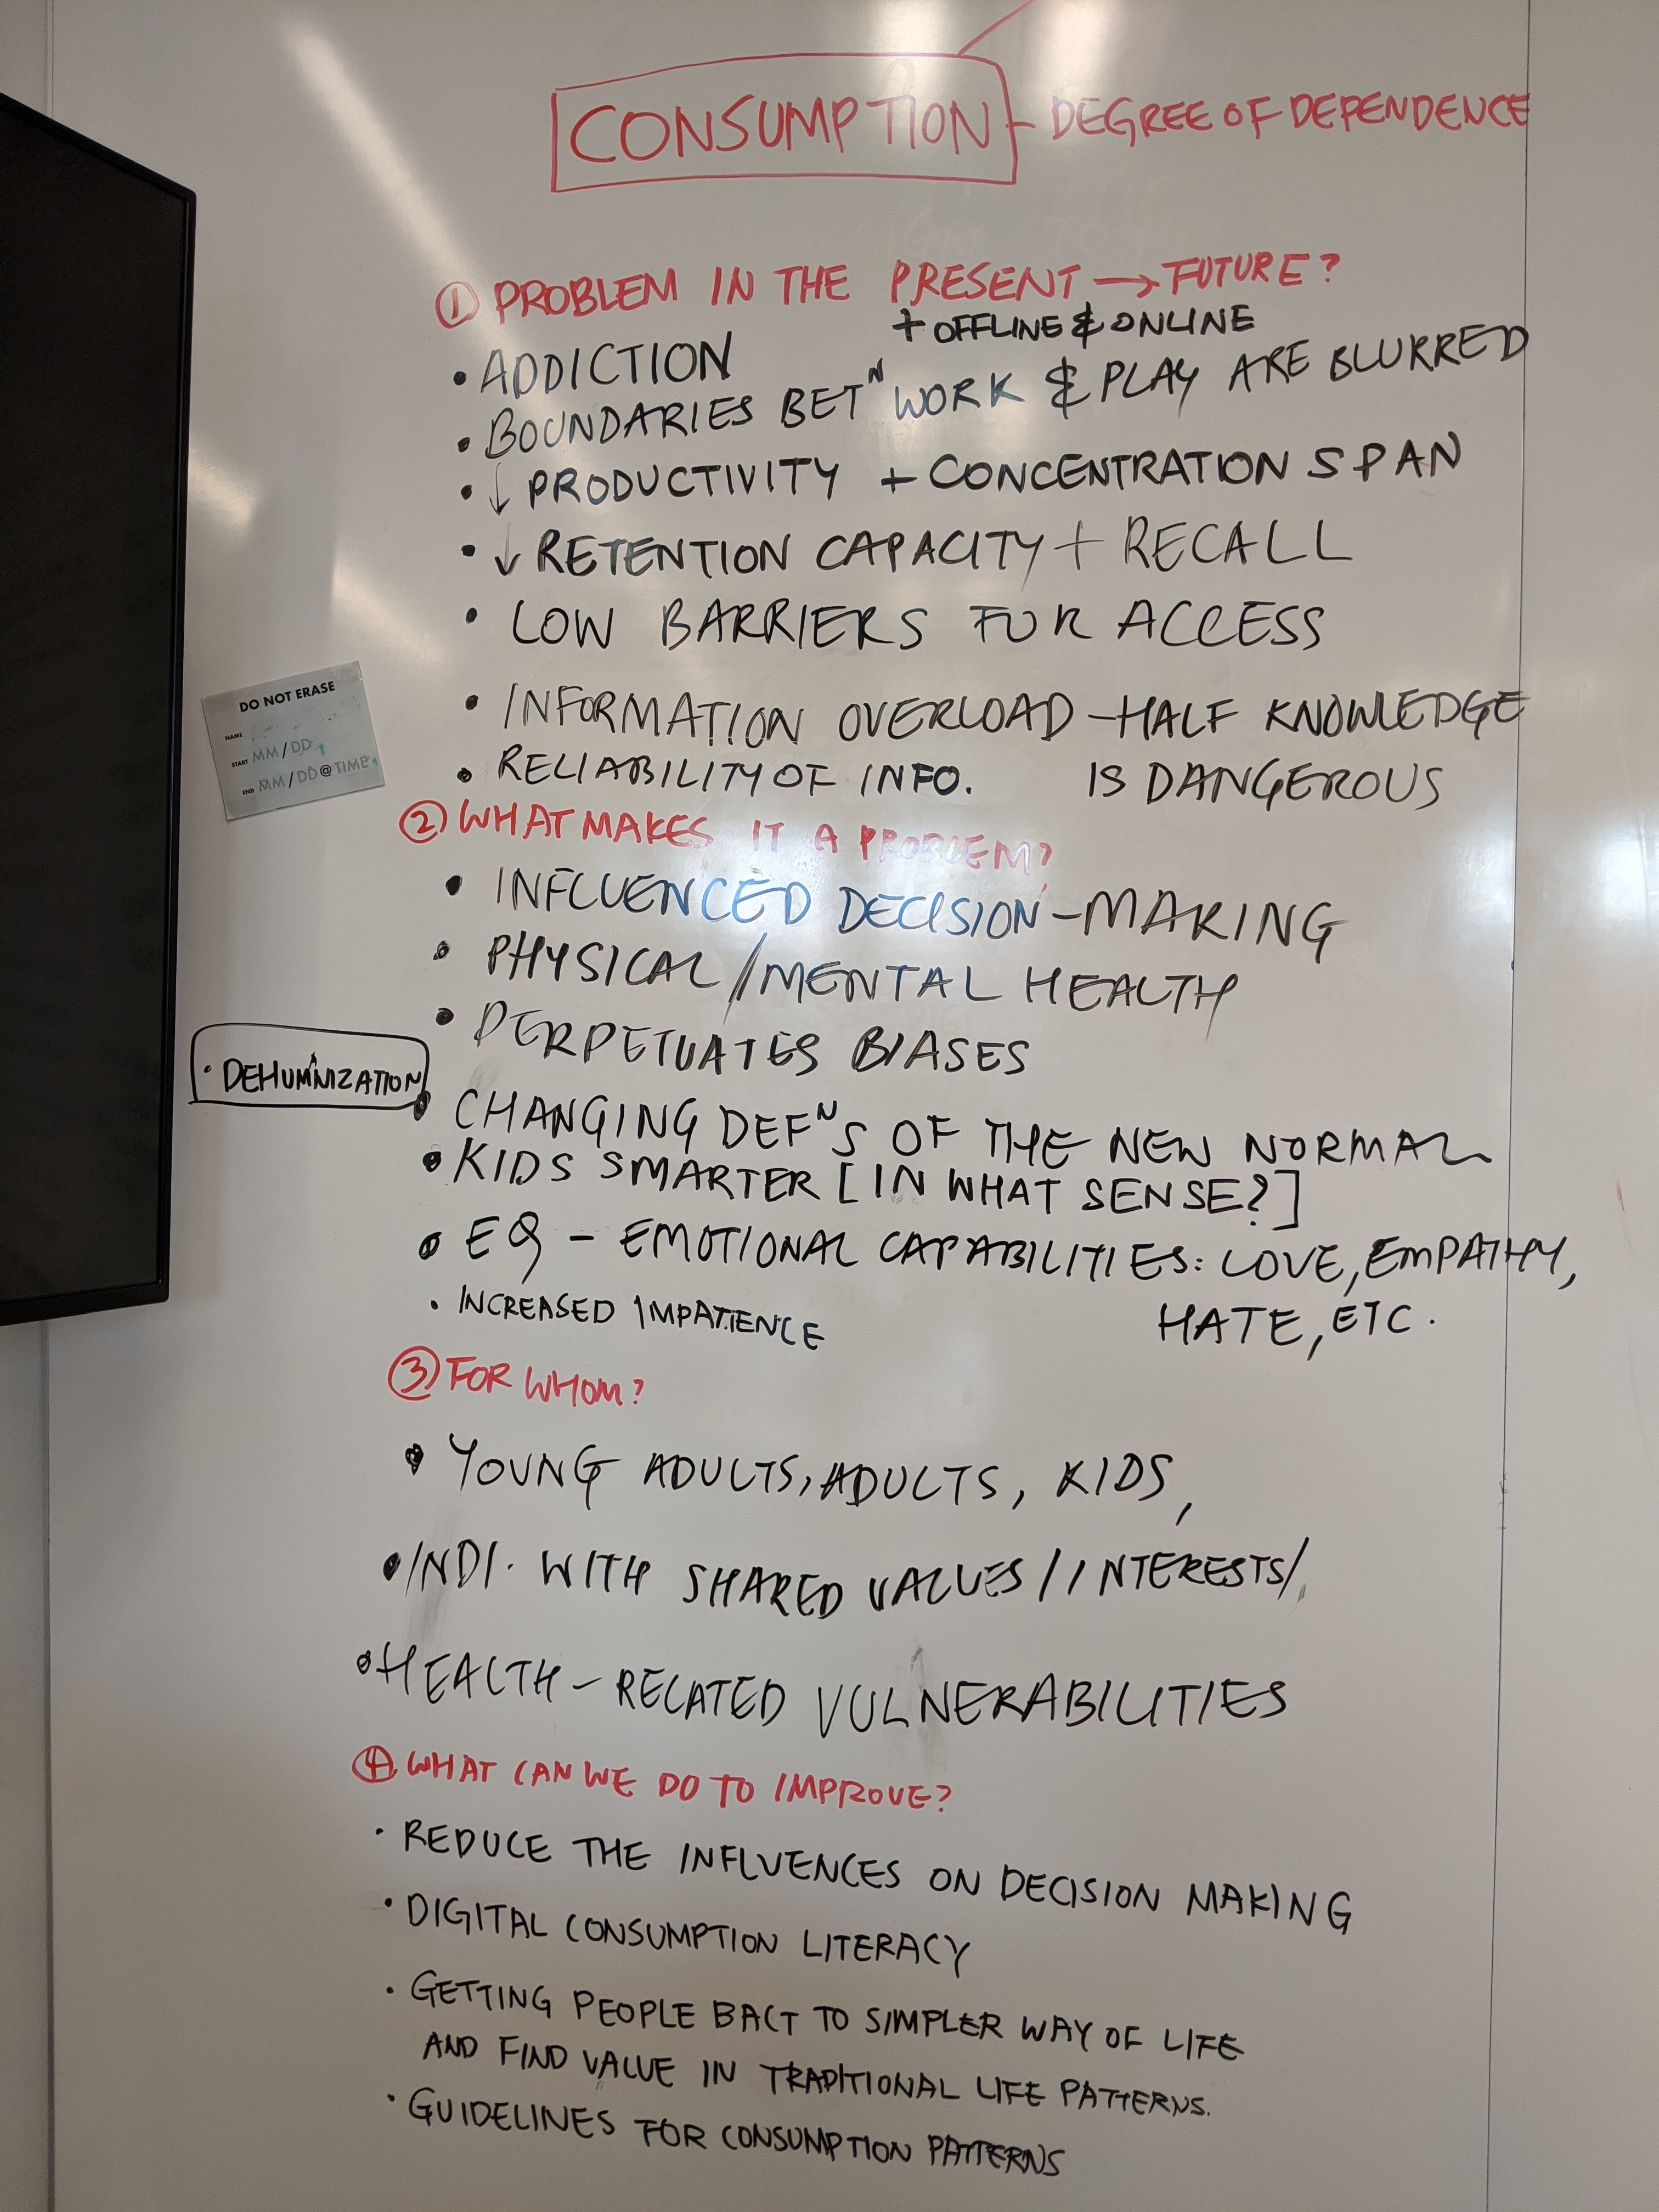 CONSUMPTION - DEGREE OF DEPENDENCE
① PROBLEM IN THE PRESENT → FUTURE?
+ OFFLINE & ONLINE
• ADDICTION
• BOUNDARIES BETᴺ WORK & PLAY ARE BLURRED
• ↓ PRODUCTIVITY + CONCENTRATION SPAN
• ↓ RETENTION CAPACITY + RECALL
• LOW BARRIERS FOR ACCESS
• INFORMATION OVERLOAD - HALF KNOWLEDGE
IS DANGEROUS
• RELIABILITY OF INFO.
DO NOT ERASE
NAME
START MM/DD
END MM/DD@TIME
② WHAT MAKES IT A PROBLEM?
• INFLUENCED DECISION-MAKING
• PHYSICAL/MENTAL HEALTH
• PERPETUATES BIASES
• DEHUMNIZATION
• CHANGING DEFᴺS OF THE NEW NORMAL
• KIDS SMARTER [IN WHAT SENSE?]
• EQ - EMOTIONAL CAPABILITIES: LOVE, EMPATHY,
HATE, ETC.
• INCREASED IMPATIENCE
③ FOR WHOM?
• YOUNG ADULTS, ADULTS, KIDS,
• INDI. WITH SHARED VALUES/INTERESTS/
• HEALTH-RELATED VULNERABILITIES
④ WHAT CAN WE DO TO IMPROVE?
• REDUCE THE INFLUENCES ON DECISION MAKING
• DIGITAL CONSUMPTION LITERACY
• GETTING PEOPLE BACT TO SIMPLER WAY OF LIFE
AND FIND VALUE IN TRADITIONAL LIFE PATTERNS.
• GUIDELINES FOR CONSUMPTION PATTERNS